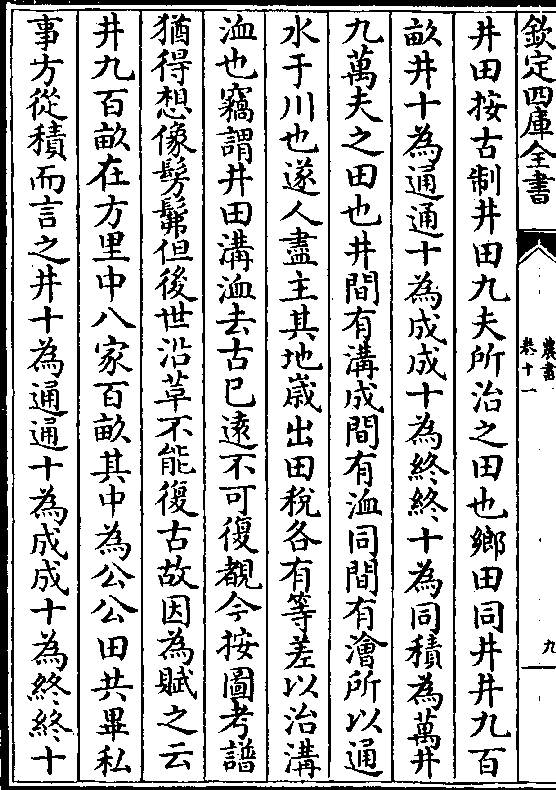 欽定四庫全書
農書
卷十一
九
井田按古制井田九夫所治之田也鄉田同井井九百
畝井十為通通十為成成十為終終十為同積為萬井
九萬夫之田也井間有溝成間有洫同間有澮所以通
水于川也遂人盡主其地嵗出田稅各有等差以治溝
洫也竊謂井田溝洫去古已遠不可復覩今按圖考譜
猶得想像髣髴但後世沿革不能復古故因為賦之云
井九百畝在方里中八家百畝其中為公公田共畢私
事方從積而言之井十為通通十為成成十為終終十